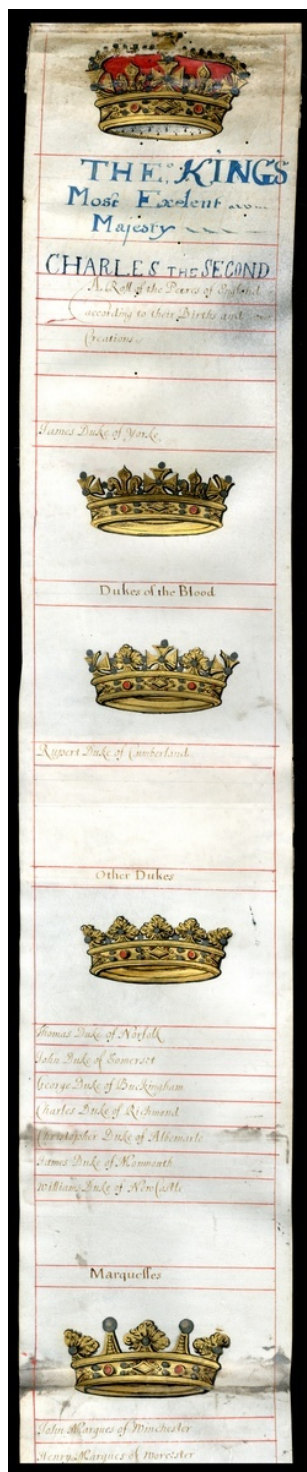 THE KINGS
Most Exelent
Majesty
CHARLES THE SECOND
A Roll of the Peeres of England
according to their Births and
Creations.
James Duke of Yorke
Dukes of the Blood
Rupert Duke of Cumberland
Other Dukes
Thomas Duke of Norfolk
John Duke of Somerset
George Duke of Buckingham
Charles Duke of Richmond
Christopher Duke of Albemarle
James Duke of Monmouth
William Duke of NewCastle
Marquesses
John Marques of Winchester
Henry Marques of Worcester